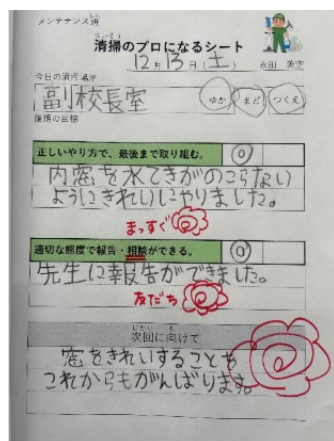 メンテナンス班
清掃のプロになるシート
12月13日(土)
今日の清掃場所
副校長室
ゆか まど つくえ
後期の目標
正しいやり方で、最後まで取り組む。 ◎
内窓を水てきがのこらない
ようにきれいにやりました。
まっすぐ
適切な態度で報告・相談ができる。 ◎
先生に報告ができました。
友だち
次回に向けて
窓をきれいすることを
これからもがんばります。